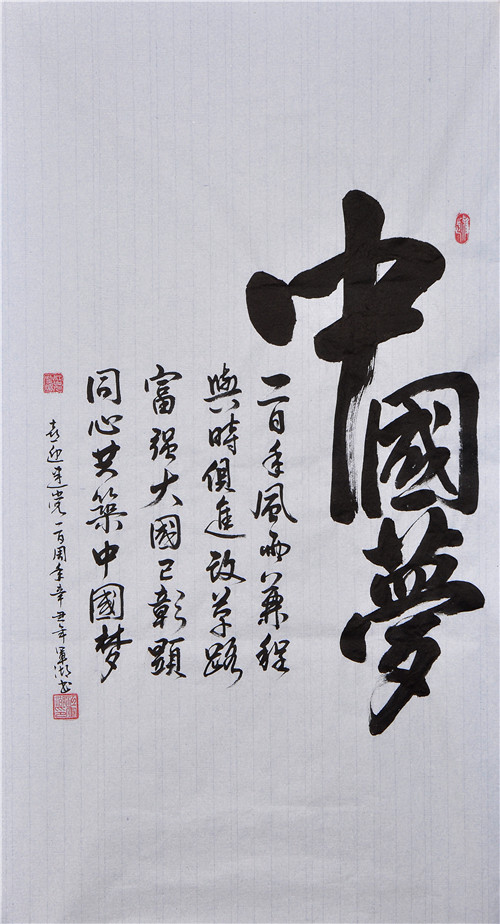 中國夢
一百年風雨兼程
與時俱進改革路
富强大國已彰顯
同心共築中國梦
喜迎建党一百周年辛丑年軍湖书